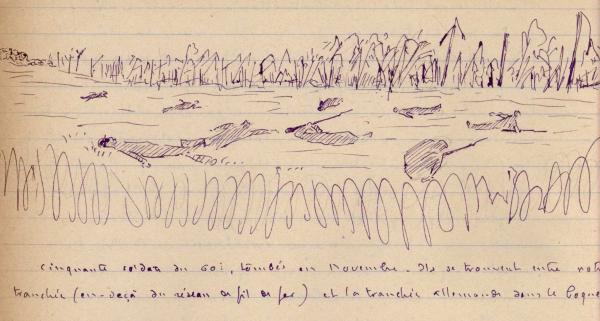 Cinquante soldats du 60i, tombés en novembre. Ils se trouvent entre notr
tranchée (en-deçà du réseau de fil de fer) et la tranchée allemande dans le boque